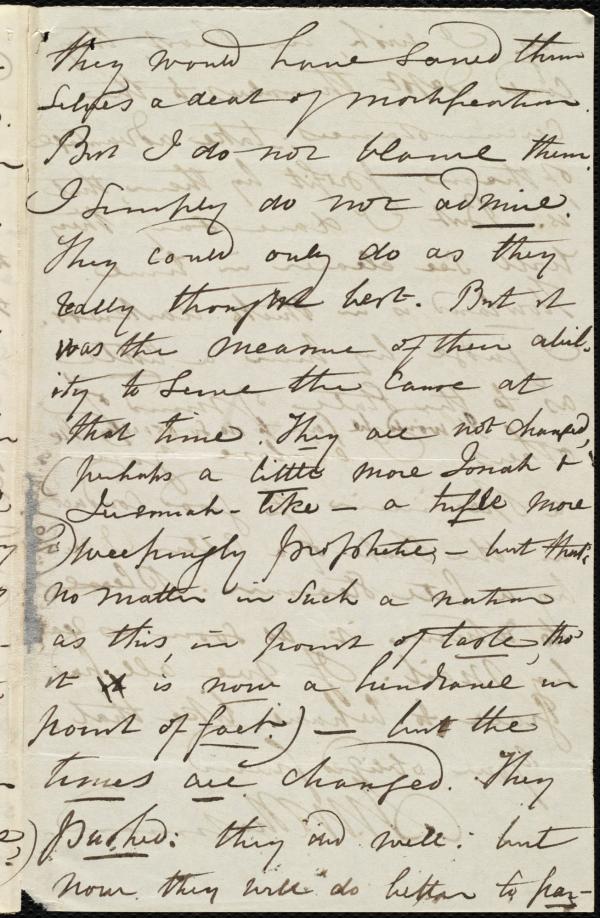 they would have saved them
selves a deal of mortification.
But I do not blame them.
I simply do not admire.
They could only do as they
really thought best. But it
was the measure of their abil-
ity to serve the cause at
that time. They are not changed,
(perhaps a little more Jonah &
Jeremiah-like - a trifle more
weepingly prophetic, - but that's
no matter in such a nation
as this, in point of taste, tho'
it is now a hindrance in
point of fact.) - but the
times are changed. They
pushed: they did well: but
now they will do better to par-